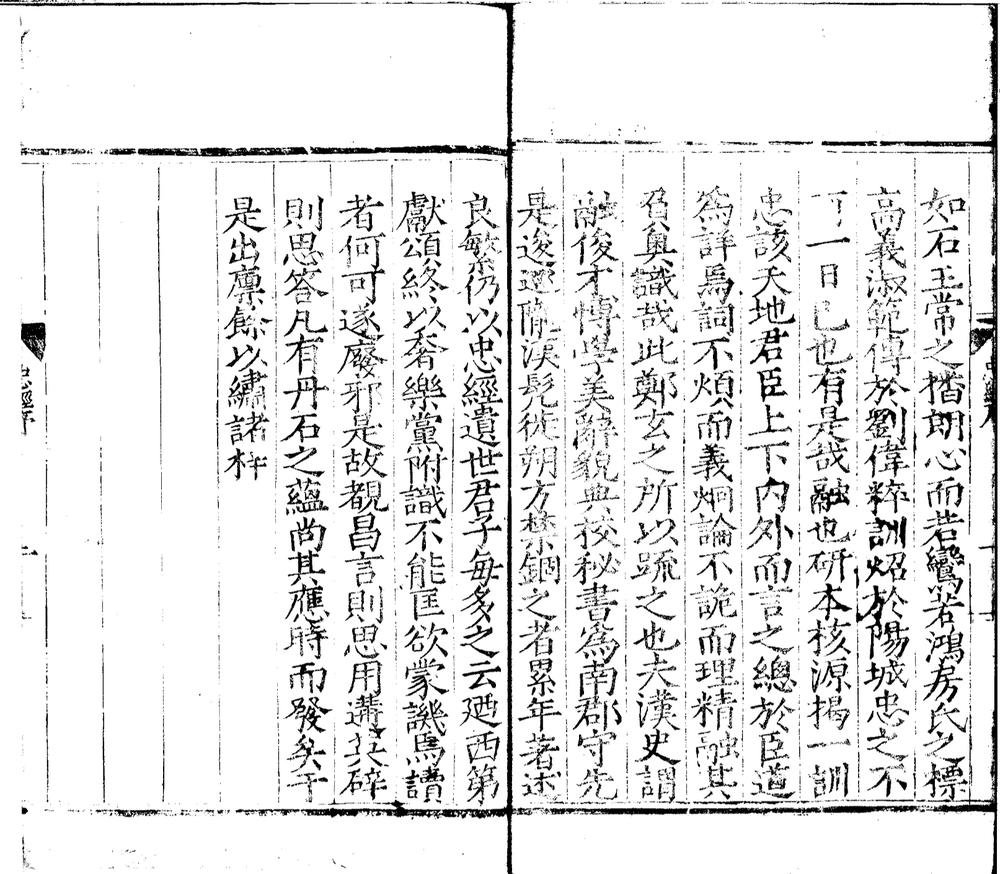 如石王常之楷朗心而若鸞若鴻房氏之標
高義淑範傳於劉偉粹訓炤於陽城忠之不
可一日已也有是哉融也研本核源揭一訓
忠該天地君臣上下內外而言之總於臣道
爲詳焉詞不煩而義炯論不詭而理精融其
負奥識哉此鄭玄之所以䟽之也夫漢史謂
融俊才愽學美辭貌典校秘書爲南郡守先
是逡廵隴漢髡徙朔方禁錮之者累年著述
良繁仍以忠經遺世君子毎多之云廼西第
獻頌終以奢樂黨附識不能匡欲蒙譏焉讀
者何可遂廢邪是故覩昌言則思用遘其辟
則思答凡有丹石之蘊尚其應時而發矣于
是出廪餘以繡諸梓
忠經序